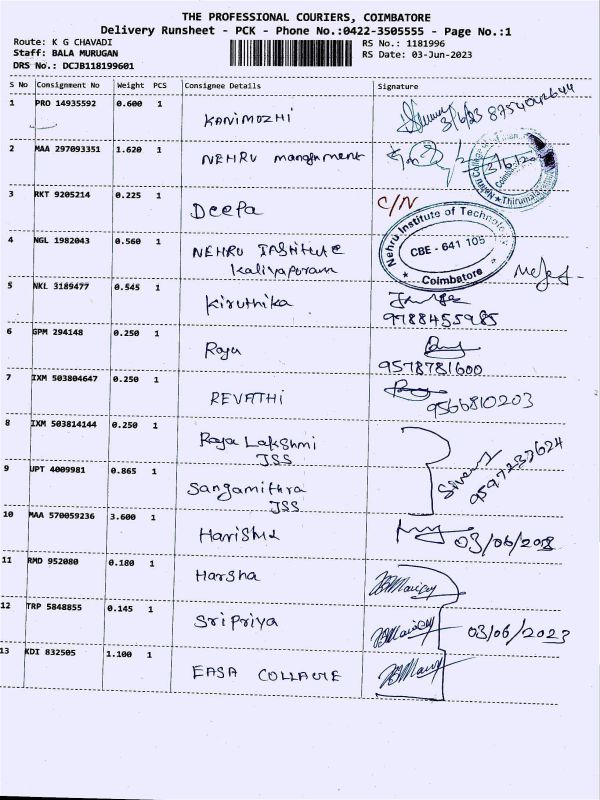 THE PROFESSIONAL COURIERS, COIMBATORE
Delivery Runsheet - PCK - Phone No.:0422-3505555 - Page No.:1
Route: K G CHAVADI RS No.: 1181996
Staff: BALA MURUGAN RS Date: 03-Jun-2023
DRS No.: DCJB118199601
S No Consignment No Weight PCS Consignee Details Signature
1 PRO 14935592 0.600 1 KANIMOZHI 3/6/23
2 MAA 297093351 1.620 1 NEHRU management
3 RKT 9205214 0.225 1 Deepa C/N
Nehru Institute of Technology
CBE - 641 105
Coimbatore
4 NGL 1982043 0.560 1 NEHRU INSTITUTE
Kaliyapuram
5 NKL 3189477 0.545 1 Kiruthika
9788455985
6 GPM 294148 0.250 1 Raja
9578781600
7 IXM 503804647 0.250 1 REVATHI 9566810203
8 IXM 503814144 0.250 1 Raja Lakshmi
JSS
9 UPT 4009981 0.865 1 Sangamithra
JSS
10 MAA 570059236 3.600 1 Harisha
11 RMD 952080 0.180 1 Harsha
12 TRP 5848855 0.145 1 Sripriya 03/06/2023
13 KDI 832505 1.100 1 EASA COLLAGE